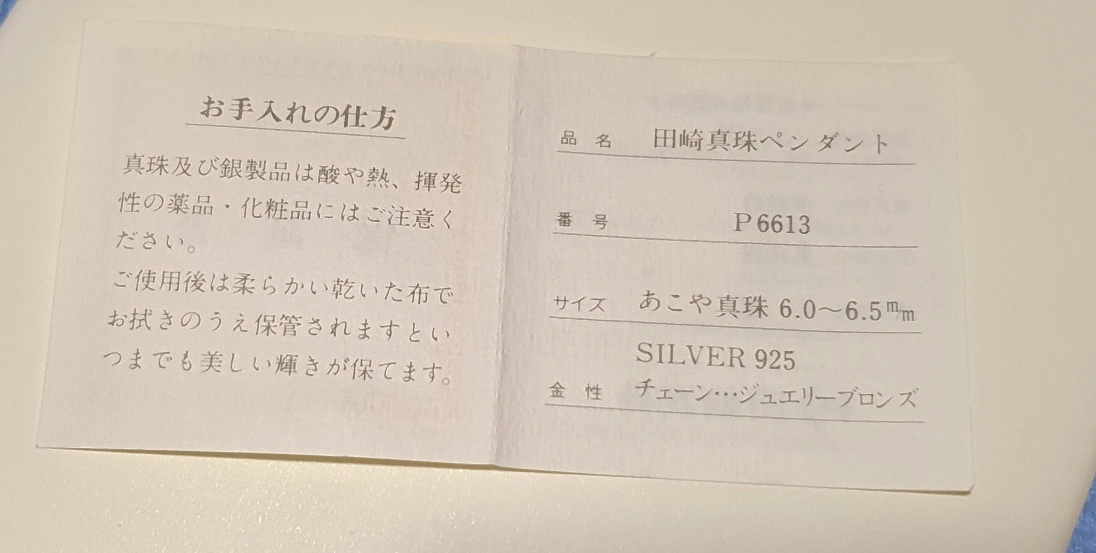 お手入れの仕方
真珠及び銀製品は酸や熱、揮発
性の薬品・化粧品にはご注意く
ださい。
ご使用後は柔らかい乾いた布で
お拭きのうえ保管されますとい
つまでも美しい輝きが保てます。
品名 田崎真珠ペンダント
番号 P6613
サイズ あこや真珠 6.0〜6.5mm
SILVER 925
金性 チェーン…ジュエリーブロンズ